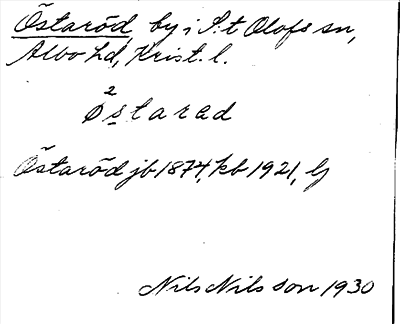 Östaröd, by i S:t Olofs sn,
Albo hd, Krist. l.
2
Østarad
Östaröd jb 1874, kb 1921, lj
Nils Nilsson 1930